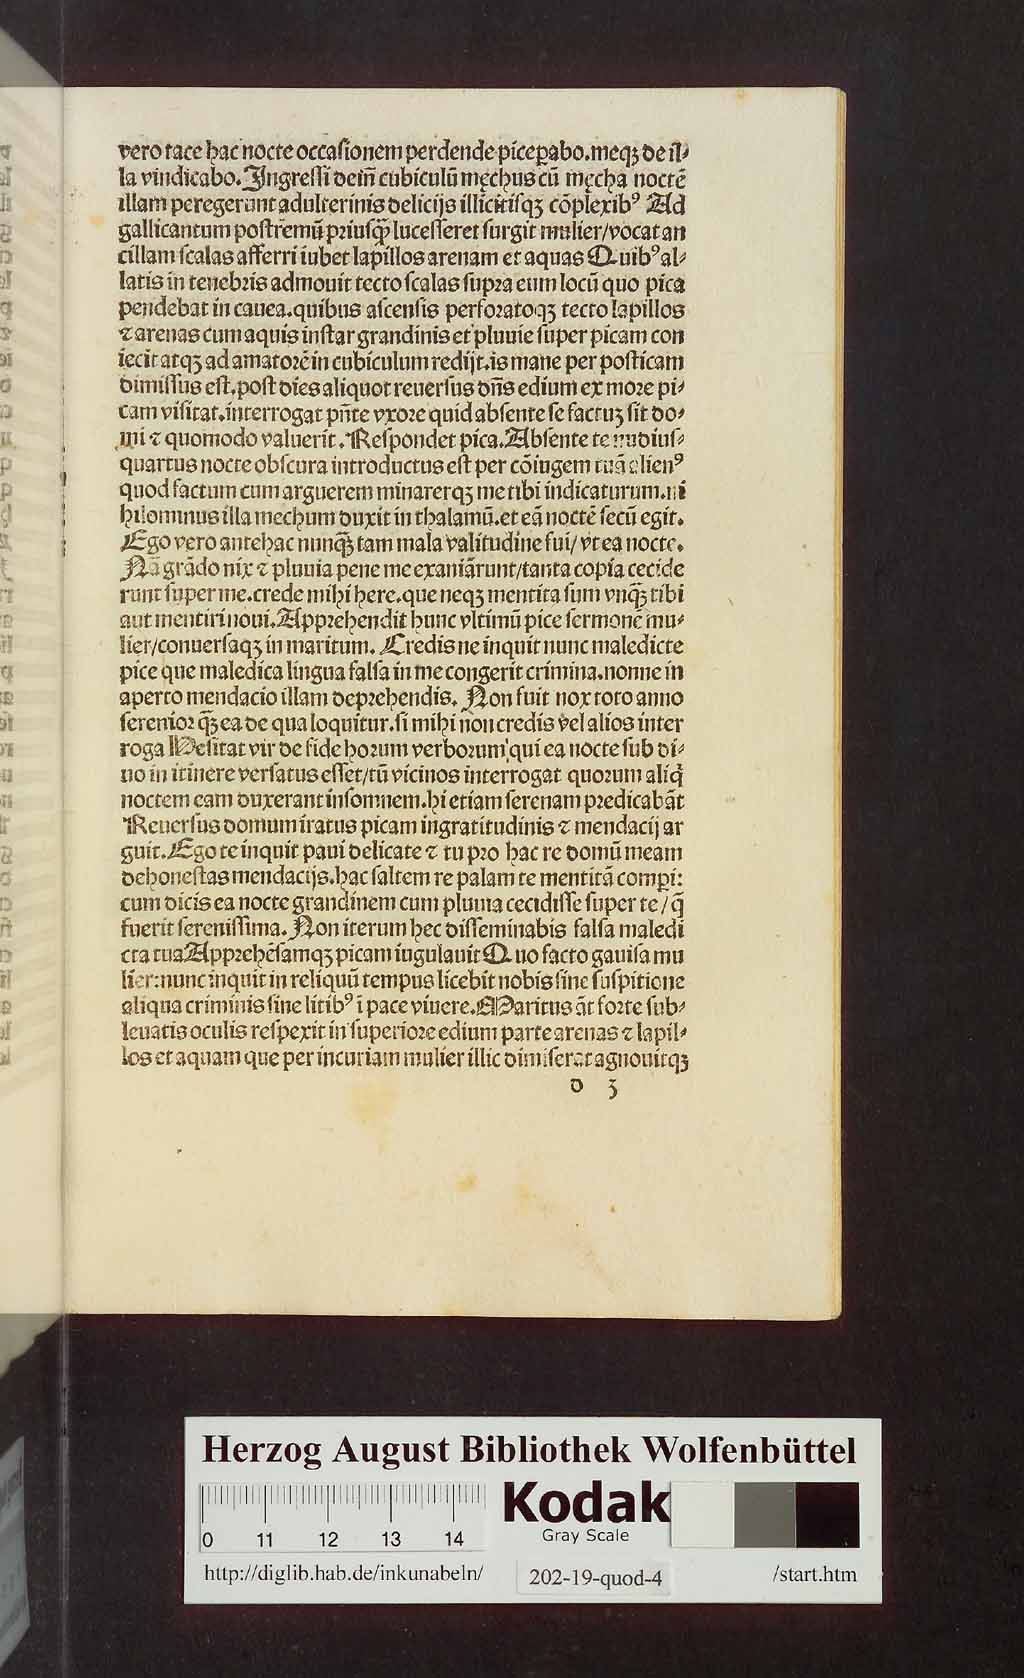 vero tace hac nocte occasionem perdende pice ꝑabo.meqꝫ de il⸗
la vindicabo. Ingressi dein̄ cubiculū męchus cū męcha noctē
illam peregerunt adulterinis delicijs illicitisqꝫ cōplexibꝰ Ad
gallicantum postremū priusqꝫ̄ lucesseret surgit mulier/vocat an
cillam scalas afferri iubet lapillos arenam et aquas Quibꝰ al⸗
latis in tenebris admouit tecto scalas supra eum locū quo pica
pendebat in cauea.quibus ascensis perforatoqꝫ tecto lapillos
⁊ arenas cum aquis instar grandinis et pluuie super picam con
iecit atqꝫ ad amatorē in cubiculum redijt.is mane per posticam
dimissus est.post dies aliquot reuersus dn̄s edium ex more pi⸗
cam visitat.interrogat pn̄te vxore quid absente se factuꝫ sit do⸗
mi ⁊ quomodo valuerit. Respondet pica.Absente te nudius⸗
quartus nocte obscura introductus est per cōiugem tuā alienꝰ
quod factum cum arguerem minarerqꝫ me tibi indicaturum.ni
hilominus illa mechum duxit in thalamū.et eā noctē secū egit.
Ego vero antehac nunqꝫ̄ tam mala valitudine fui/ vt ea nocte.
Nā grādo nix ⁊ pluuia pene me exaniārunt/tanta copia cecide
runt super me.crede mihi here.que neqꝫ mentita sum vnqꝫ̄ tibi
aut mentiri noui.Apprehendit hunc vltimū pice sermonē mu⸗
lier/conuersaqꝫ in maritum. Credis ne inquit nunc maledicte
pice que maledica lingua falsa in me congerit crimina.nonne in
aperto mendacio illam deprehendis. Non fuit nox toto anno
serenior qꝫ̄ ea de qua loquitur.si mihi non credis vel alios inter
roga Hesitat vir de fide horum verborum qui ea nocte sub di⸗
uo in itinere versatus esset/tū vicinos interrogat quorum aliq̄
noctem eam duxerant insomnem.hi etiam serenam predicabāt
Reuersus domum iratus picam ingratitudinis ⁊ mendacij ar
guit.Ego te inquit paui delicate ⁊ tu pro hac re domū meam
dehonestas mendacijs.hac saltem re palam te mentitā comperi:
cum dicis ea nocte grandinem cum pluuia cecidisse super te/ q̄
fuerit serenissima. Non iterum hec disseminabis falsa maledi
cta tua Apprehēsamqꝫ picam iugulauit Quo facto gauisa mu
lier:nunc inquit in reliquū tempus licebit nobis sine suspitione
aliqua criminis sine litibꝰ ī pace viuere.Maritus āt forte sub⸗
leuatis oculis respexit in superiore edium parte arenas ⁊ lapil⸗
los et aquam que per incuriam mulier illic dimiserat agnouitqꝫ
d 3
Herzog August Bibliothek Wolfenbüttel
0 11 12 13 14
Kodak
Gray Scale
http://diglib.hab.de/inkunabeln/ 202-19-quod-4 /start.htm